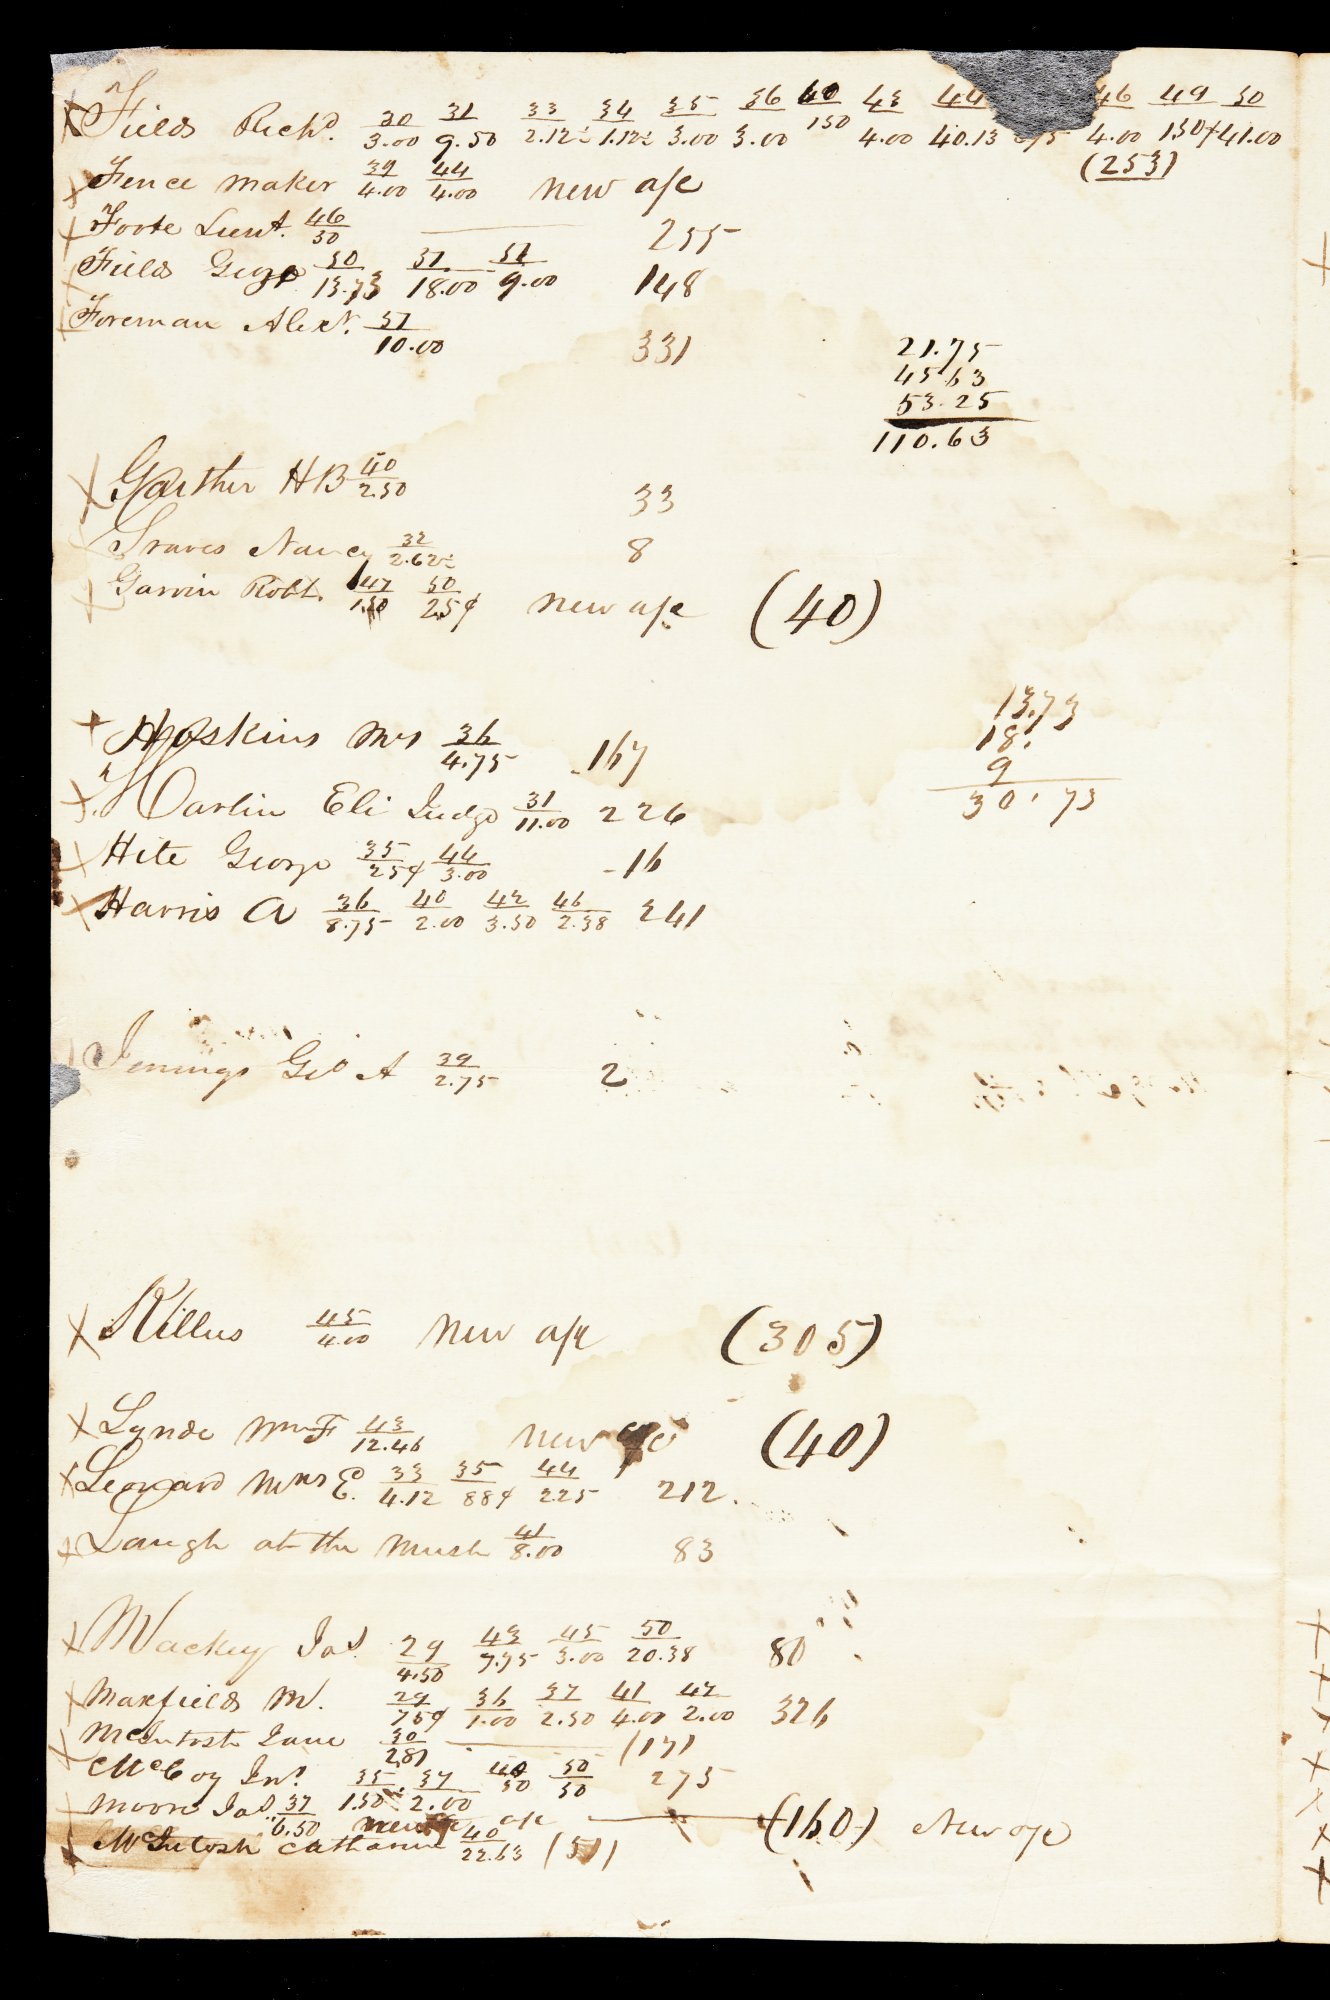 x Fields Rich^d. 30/3.00 31/9.50 33/2.12½ 34/1.12½ 35/3.00 36/3.00 40/150 43/4.00 44/40.13 75 46/4.00 49/1.50 + 50/41.00
(253)
x Fence maker 39/4.00 44/4.00 new a/c
x Foote Lieut. 46/50 —— 255
x Fields George 50/13.73 51/18.00 51/9.00 148
x Foreman Alex^r. 51/10.00 331
21.75
45 63
53.25
110.63
x Gaither H B 40/2.50 33
x Graves Nancy 32/2.62½ 8
x Garvin Robt. 47/1.50 50/25¢ new a/c (40)
13.73
18.
9
30.73
x Hoskins Mrs 36/4.75 167
x Harlin Eli Judge 31/11.00 226
x Hite George 35/25¢ 44/3.00 16
x Harris A 36/8.75 40/2.00 42/3.50 46/2.38 241
Jennings Geo A 39/2.75 2
x Killus 45/4.00 new a/c (305)
x Lynde Wm F 43/12.46 new a/c (40)
x Leonard Mrs E. 33/4.12 35/88¢ 44/2.25 212.
x Laugh at the mush 41/8.00 83
x Mackey Jas. 29/4.50 43/7.75 45/3.00 50/20.38 80
x Maxfields M. 29/75¢ 36/1.00 37/2.50 41/4.00 42/2.00 326
x McIntosh Jane 30/2.81 —— (17)
McCoy Jn^o. 35/1.50 37/2.00 40/50 50/50 275
x Moore Jas 37/6.50 new a/c —— (160) New a/c
x McIntosh Catharine 40/22.63 (51)